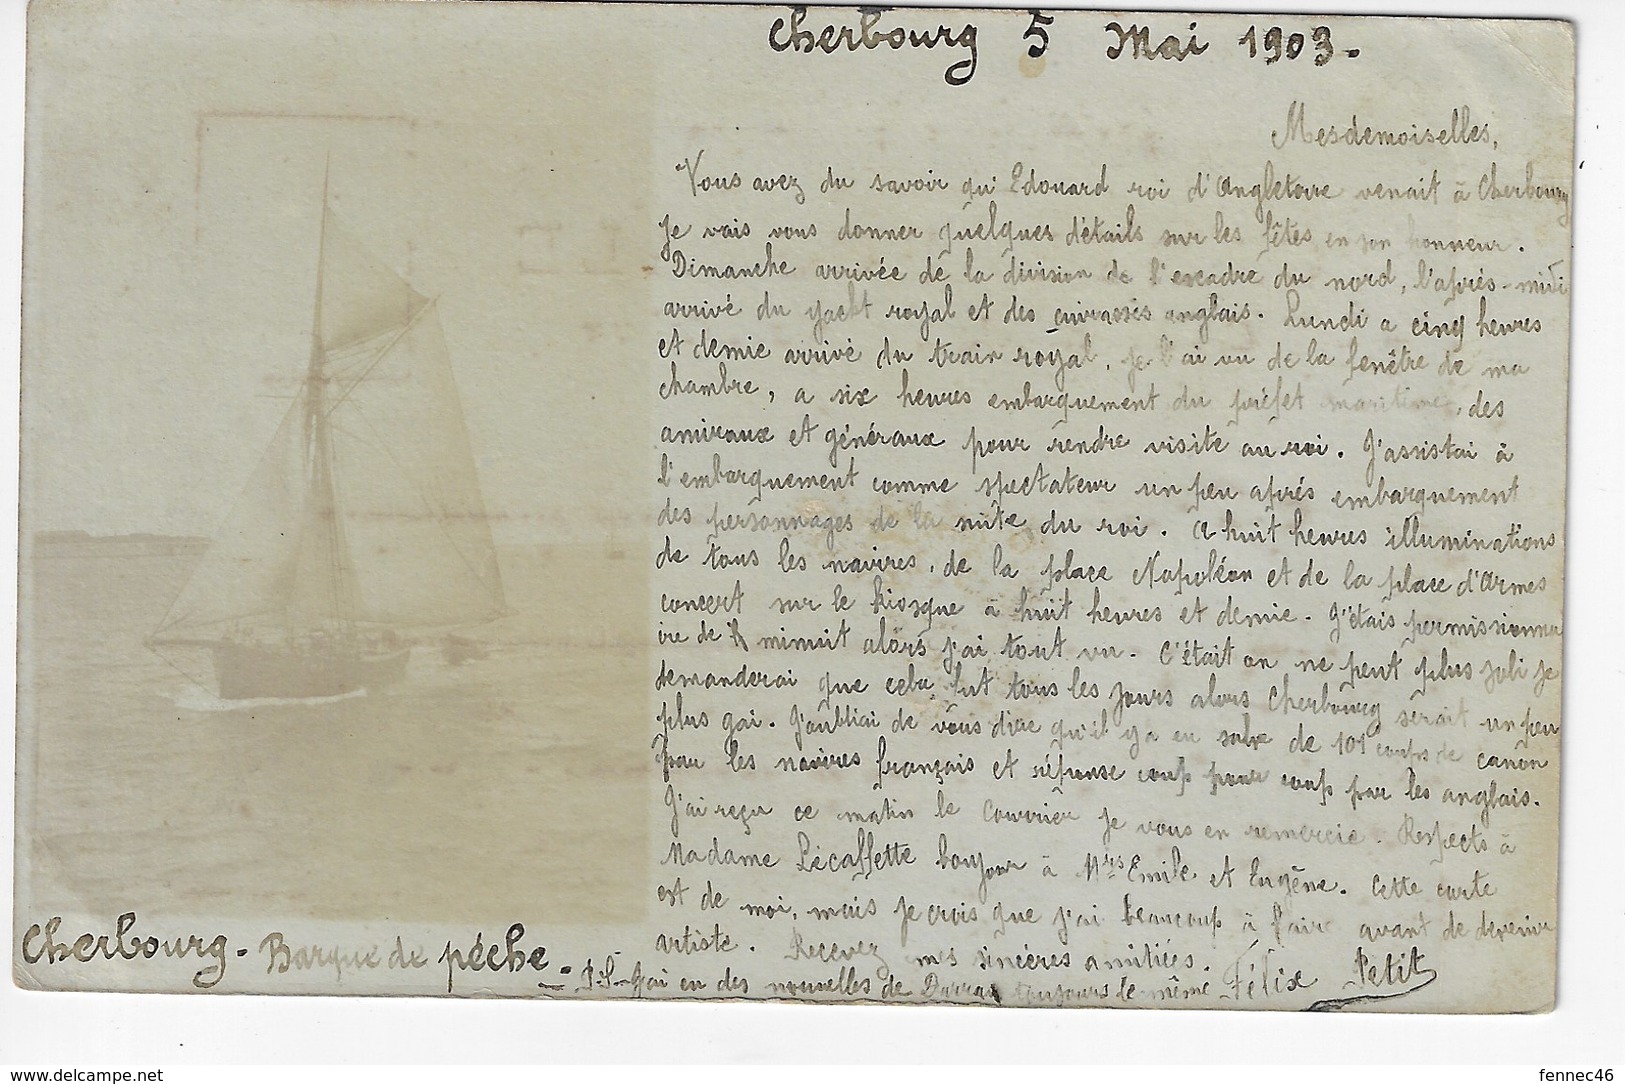 Cherbourg 5 Mai 1903.
Mesdemoiselles,
Vous avez du savoir qu'Edouard roi d'Angleterre venait à Cherbourg
Je vais vous donner quelques détails sur les fêtes en son honneur.
Dimanche arrivée de la division de l'escadre du nord, l'après-midi
arrivé du yacht royal et des cuirassés anglais. Lundi a cinq heures
et demie arrivé du train royal, je l'ai vu de la fenêtre de ma
chambre, a six heures embarquement du préfet maritime, des
amiraux et généraux pour rendre visite au roi. J'assistai à
l'embarquement comme spectateur un peu après embarquement
des personnages de la suite du roi. A huit heures illuminations
de tous les navires, de la place Napoléon et de la place d'Armes
concert sur le kiosque à huit heures et demie. J'étais permissionna
ire de minuit alors j'ai tout vu. C'était on ne peut plus joli je
demanderai que cela fut tous les jours alors Cherbourg serait un peu
plus gai. J'oubliai de vous dire qu'il y a eu salve de 101 coups de canon
par les navires français et réponse coup pour coup par les anglais.
J'ai reçu ce matin le Courrier je vous en remercie. Respects à
Madame Lécaffette bonjour à Mrs Emile et Eugène. Cette carte
est de moi, mais je crois que j'ai beaucoup à faire avant de devenir
artiste. Recevez mes sincères amitiés. Félix Petit
P.S. J'ai eu des nouvelles de toujours le même
Cherbourg - Barque de pêche -
www.delcampe.net
fennec46